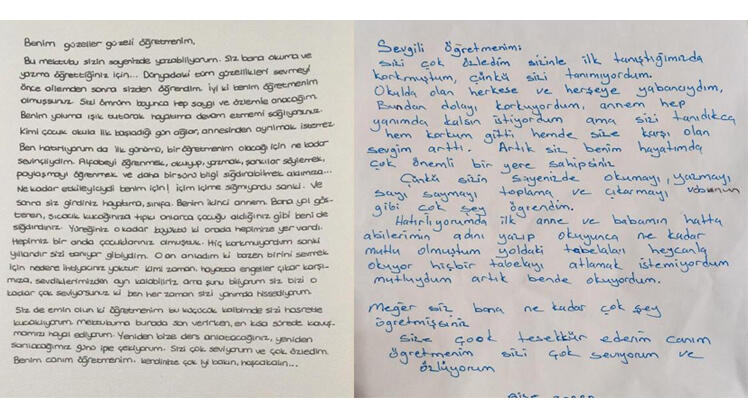 Benim güzeller güzeli öğretmenim,
Bu mektubu sizin sayenizde yazabiliyorum. Siz bana okuma ve
yazma öğrettiğiniz için... Dünyadaki tüm güzellikleri sevmeyi
önce ailemden sonra sizden öğrendim. İyi ki benim öğretmenim
olmuşsunuz. Sizi ömrüm boyunca hep saygı ve özlemle anacağım.
Benim yoluma ışık tutarak hayatıma devam etmemi sağlıyorsunuz.
Kimi çocuk okula ilk başladığı gün ağlar, annesinden ayrılmak istemez
Ben hatırlıyorum da ilk günümü, bir öğretmenim olacağı için ne kadar
sevinçliydim. Alfabeyi öğrenmek, okuyup, yazmak, şarkılar söylemek,
paylaşmayı öğrenmek ve daha birsürü bilgi sığdırabilmek aklımıza...
Ne kadar etkileyiciydi benim için! İçim içime sığmıyordu sanki. Ve
sonra siz girdiniz hayatıma, sınıfa. Benim ikinci annem. Bana yol gös-
teren, sıcacık kucağınıza tıpkı onlarca çocuğu aldığınız gibi beni de
sığdırdınız. Yüreğiniz o kadar büyüktü ki orada hepimize yer vardı.
Hepimiz bir anda çocuklarınız olmuştuk. Hiç korkmuyordum sanki
yıllardır sizi tanıyor gibiydim. O an anladım ki bazen birini sevmek
için nedene ihtiyacınız yoktur. Kimi zaman, hayatta engeller çıkar karşı-
mıza, sevdiklerimizden ayrı kalabiliriz ama şunu biliyorum siz bizi o
kadar çok seviyorsunuz ki ben her zaman sizi yanımda hissediyorum.
Siz de emin olun ki öğretmenim bu küçücük kalbimde sizi hasretle
kucaklıyorum. Mektubuma burada son verirken, en kısa sürede kavuş-
mamızı hayal ediyorum. Yeniden bize ders anlatacağınız, yeniden
sarılacağımız günü iple çekiyorum. Sizi çok seviyorum ve çok özledim.
Benim canım öğretmenim. Kendinize çok iyi bakın, hoşçakalın...
Sevgili öğretmenim;
sizi çok özledim sizinle ilk tanıştığımızda
korkmuştum, çünkü sizi tanımıyordum.
Okulda olan herkese ve herşeye yabancıydım,
Bundan dolayı korkuyordum, annem hep
yanımda kalsın istiyordum ama sizi tanıdıkça
hem korkum gitti hemde size karşı olan
sevgim arttı. Artık siz benim hayatımda
çok önemli bir yere sahipsiniz
Çünkü sizin sayenizde okumayı, yazmayı
sayı saymayı toplama ve çıkarmayı
gibi çok şey öğrendim.
Hatırlıyorumda ilk anne ve babamın hatta
abilerimin adını yazıp okuyunca ne kadar
mutlu olmuştum yoldaki tabelaları heycanla
okuyor hiçbir tabelayı atlamak istemiyordum
mutluydum artık bende okuyordum.
Meğer siz bana ne kadar çok şey
öğretmişsiniz
Size çook teşekkür ederim canım
öğretmenim sizi çok seviyorum ve
özlüyorum